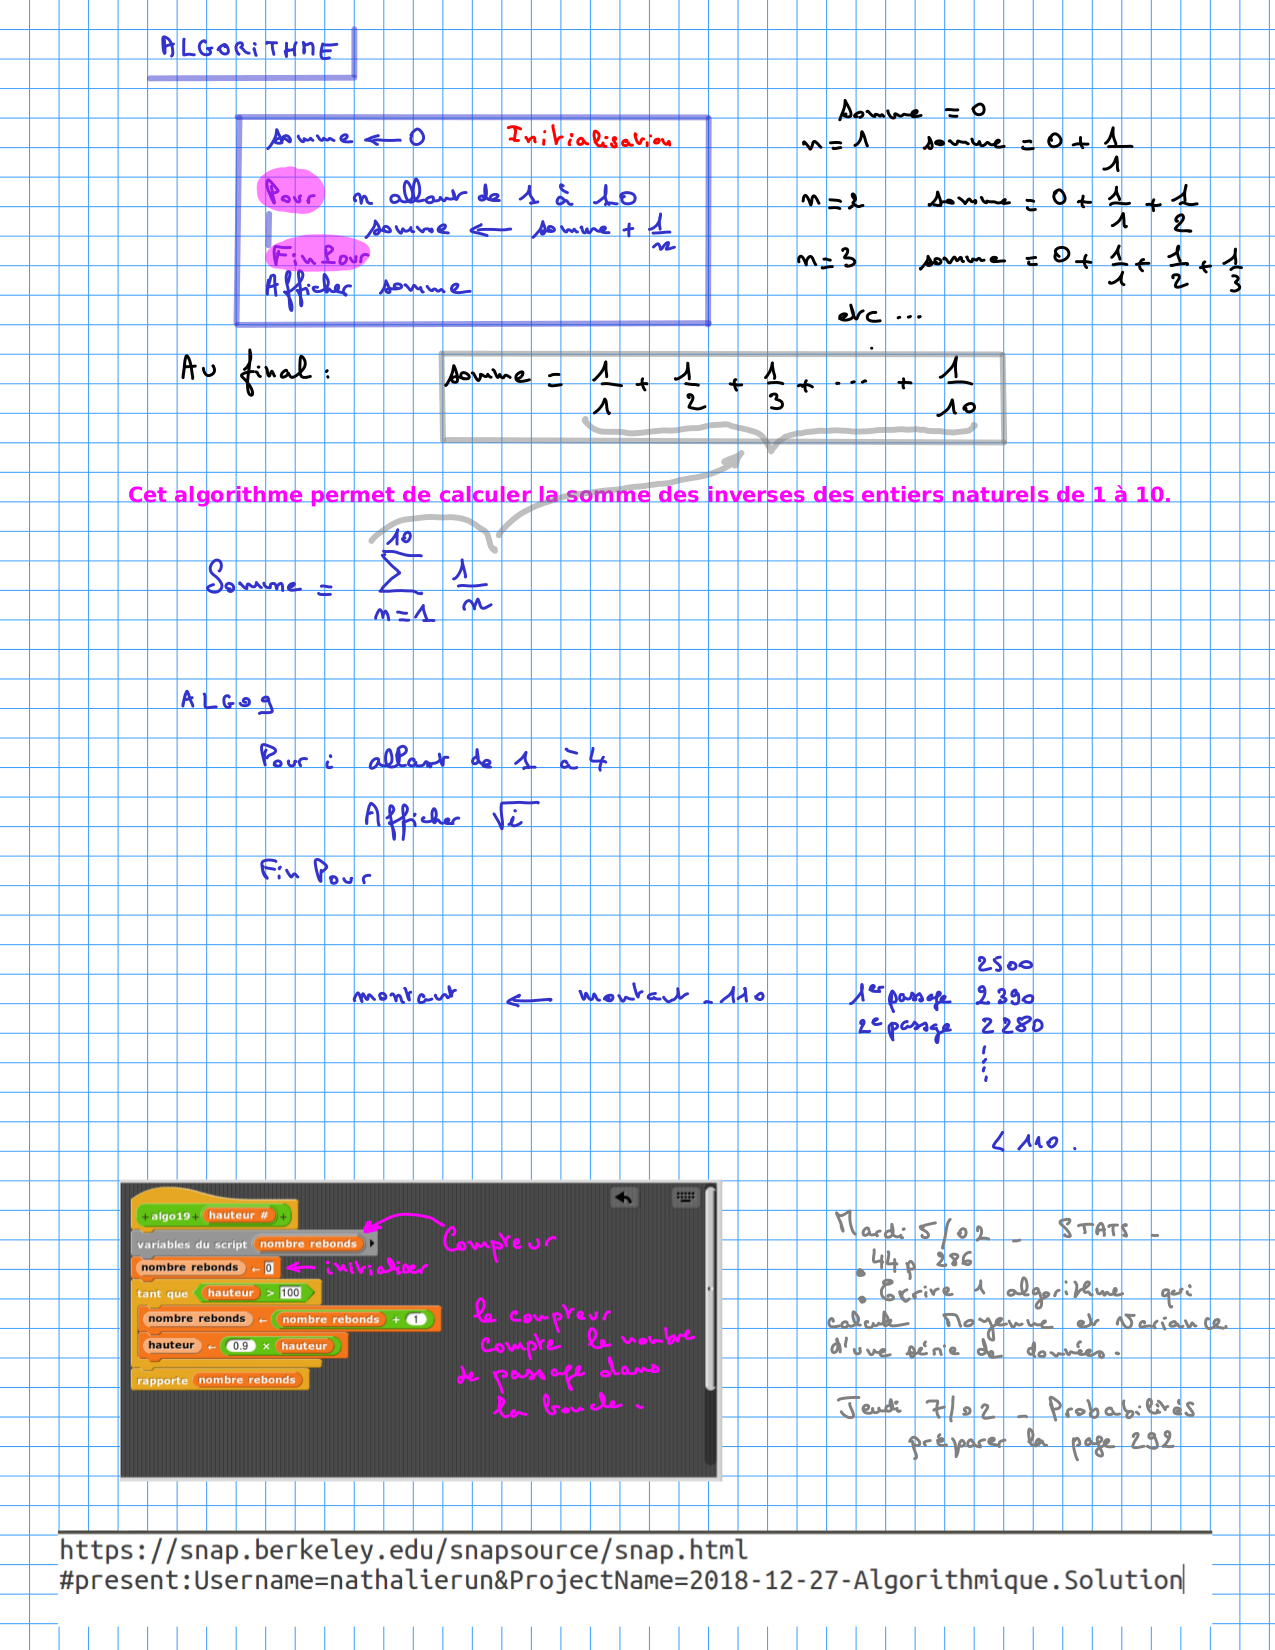 ALGORITHME
somme ← 0 Initialisation
Pour n allant de 1 à 10
somme ← somme + 1/n
Fin Pour
Afficher somme
Somme = 0
n = 1 somme = 0 + 1/1
n = 2 somme = 0 + 1/1 + 1/2
n = 3 somme = 0 + 1/1 + 1/2 + 1/3
etc ...
Au final :
somme = 1/1 + 1/2 + 1/3 + ... + 1/10
Cet algorithme permet de calculer la somme des inverses des entiers naturels de 1 à 10.
Somme = ∑ n=1 10 1/n
ALGO 9
Pour i allant de 1 à 4
Afficher √i
Fin Pour
montant ← montant - 110
2500
1er passage 2390
2e passage 2280
⋮
< 110.
+ algo19 + hauteur # +
variables du script nombre rebonds
nombre rebonds ← 0
tant que hauteur > 100
nombre rebonds ← nombre rebonds + 1
hauteur ← 0.9 × hauteur
rapporte nombre rebonds
Compteur
← initialiser
le compteur
compte le nombre
de passage dans
la boucle.
Mardi 5/02 - STATS -
• 44 p 286
• Ecrire 1 algorithme qui
calcule Moyenne et Variance
d'une série de données.
Jeudi 7/02 - Probabilités
préparer la page 292
https://snap.berkeley.edu/snapsource/snap.html
#present:Username=nathalierun&ProjectName=2018-12-27-Algorithmique.Solution